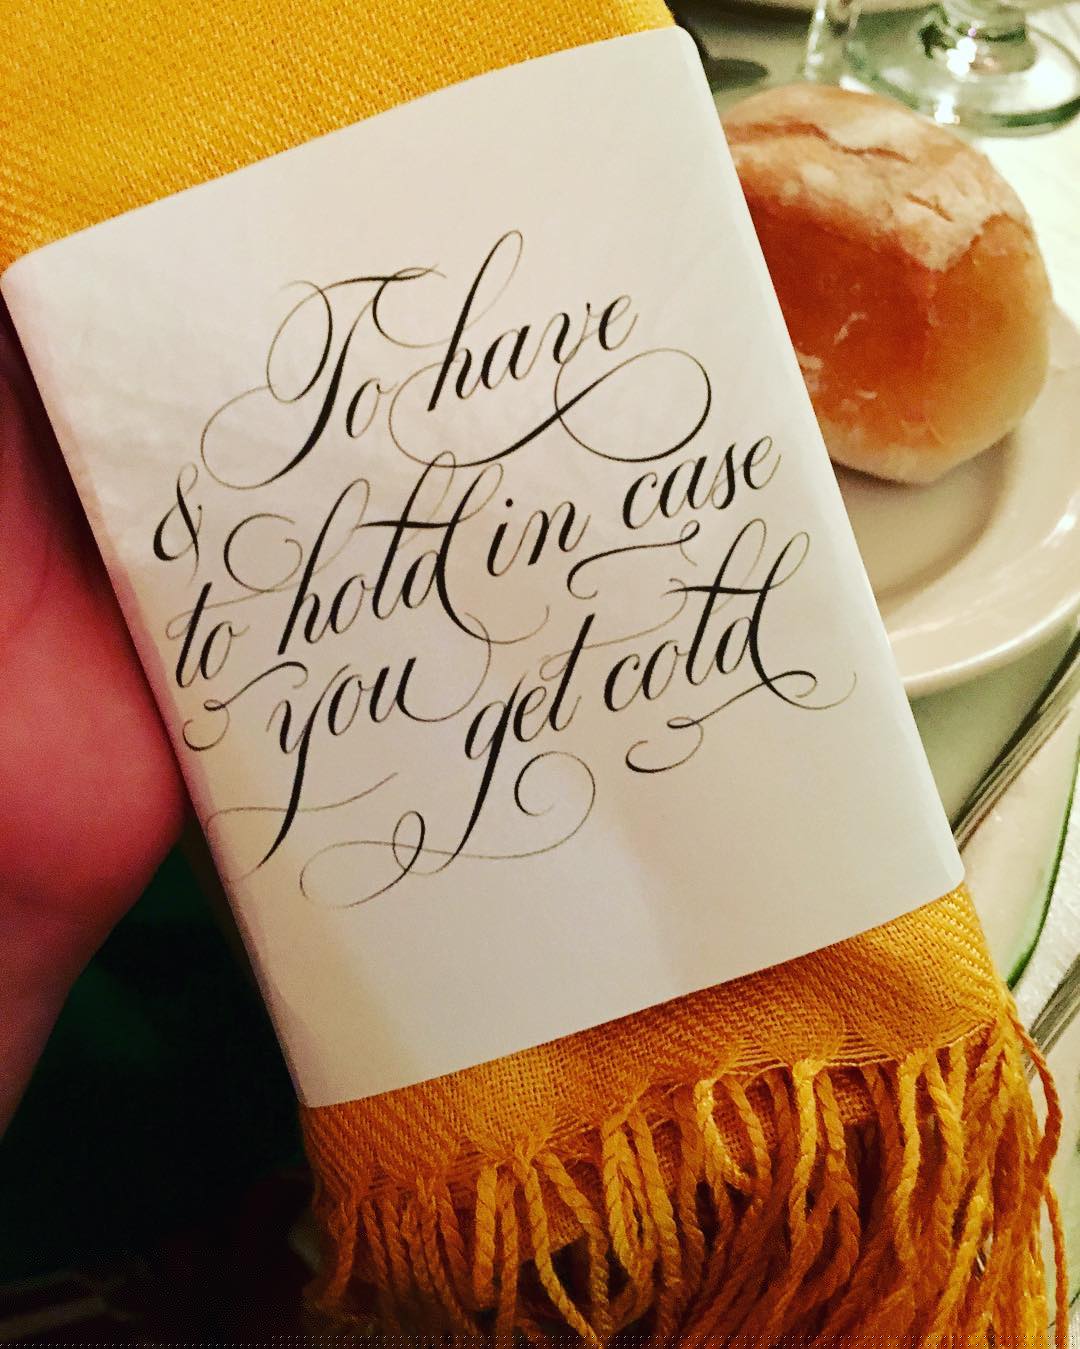 To have
& to hold in case
you get cold